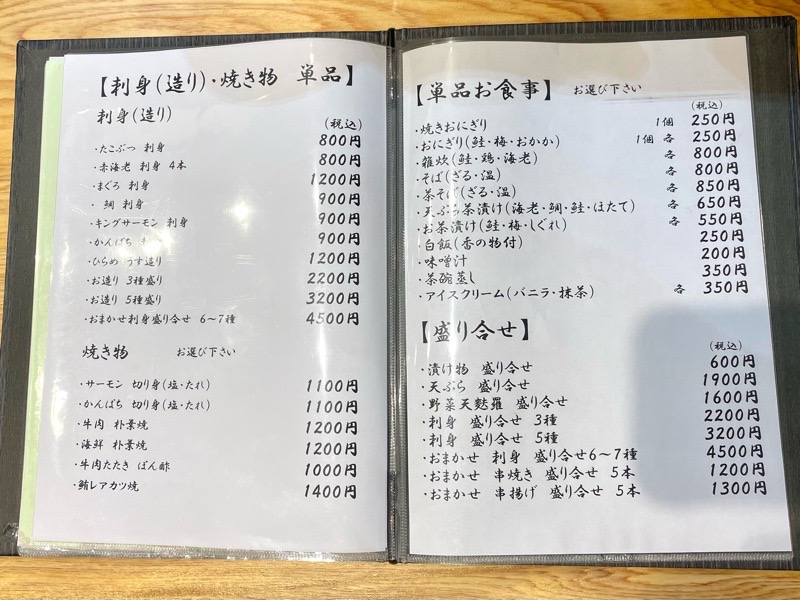 【刺身(造り)・焼き物 単品】
刺身(造り)
(税込)
・たこぶつ 刺身 800円
・赤海老 刺身 4本 800円
・まぐろ 刺身 1200円
・鯛 刺身 900円
・キングサーモン 刺身 900円
・かんぱち 900円
・ひらめ うす造り 1200円
・お造り 3種盛り 2200円
・お造り 5種盛り 3200円
・おまかせ刺身盛り合せ 6〜7種 4500円
焼き物 お選び下さい
・サーモン 切り身(塩・たれ) 1100円
・かんぱち 切り身(塩・たれ) 1100円
・牛肉 朴葉焼 1200円
・海鮮 朴葉焼 1200円
・牛肉たたき ぽん酢 1000円
・鮪レアカツ焼 1400円
【単品お食事】 お選び下さい
(税込)
・焼きおにぎり 1個 250円
・おにぎり(鮭・梅・おかか) 1個 各 250円
・雑炊(鮭・鶏・海老) 各 800円
・そば(ざる・温) 各 800円
・茶そば(ざる・温) 各 850円
・天ぷら茶漬け(海老・鯛・鮭・ほたて) 各 650円
・お茶漬け(鮭・梅・しぐれ) 各 550円
・白飯(香の物付) 250円
・味噌汁 200円
・茶碗蒸し 350円
・アイスクリーム(バニラ・抹茶) 各 350円
【盛り合せ】
(税込)
・漬け物 盛り合せ 600円
・天ぷら 盛り合せ 1900円
・野菜天麩羅 盛り合せ 1600円
・刺身 盛り合せ 3種 2200円
・刺身 盛り合せ 5種 3200円
・おまかせ 刺身 盛り合せ6〜7種 4500円
・おまかせ 串焼き 盛り合せ 5本 1200円
・おまかせ 串揚げ 盛り合せ 5本 1300円